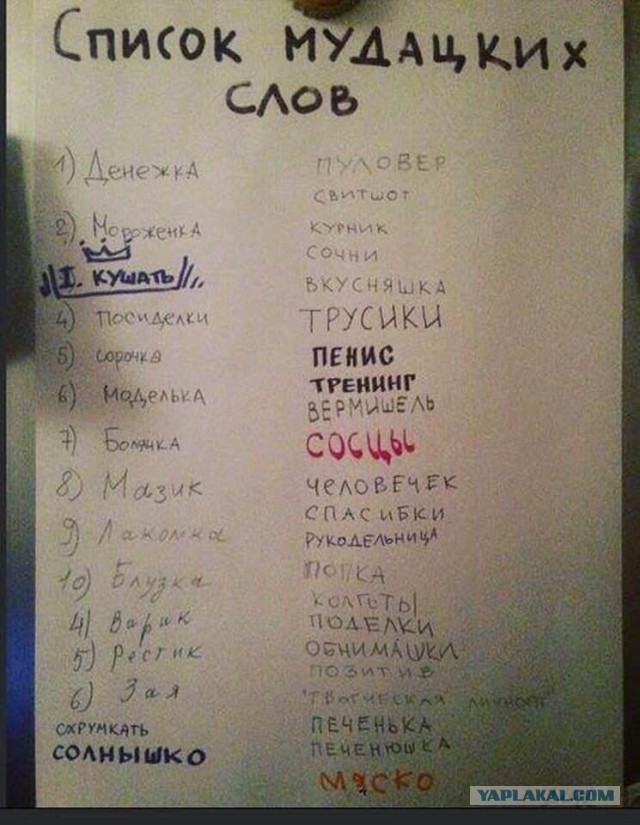 Список мудацких
слов
1) Денежка
2) Мороженка
I. кушать
4) Посиделки
5) сорочка
6) Моделька
7) Болячка
8) Мазик
9) Лакомка
10) Блузка
4) Варик
5) Рестик
6) Зая
схрумкать
солнышко
ПУЛОВЕР
СВИТШОТ
КУРНИК
СОЧНИ
ВКУСНЯШКА
ТРУСИКИ
ПЕНИС
ТРЕНИНГ
ВЕРМИШЕЛЬ
СОСЦЫ
ЧЕЛОВЕЧЕК
СПАСИБКИ
РУКОДЕЛЬНИЦА
ПОПКА
КОЛГОТЫ
ПОДЕЛКИ
ОБНИМАШКИ
ПОЗИТИВ
"ТВОРЧЕСКАЯ ЛИЧНОСТЬ"
ПЕЧЕНЬКА
ПЕЧЕНЮШКА
МЯСКО
YAPLAKAL.COM